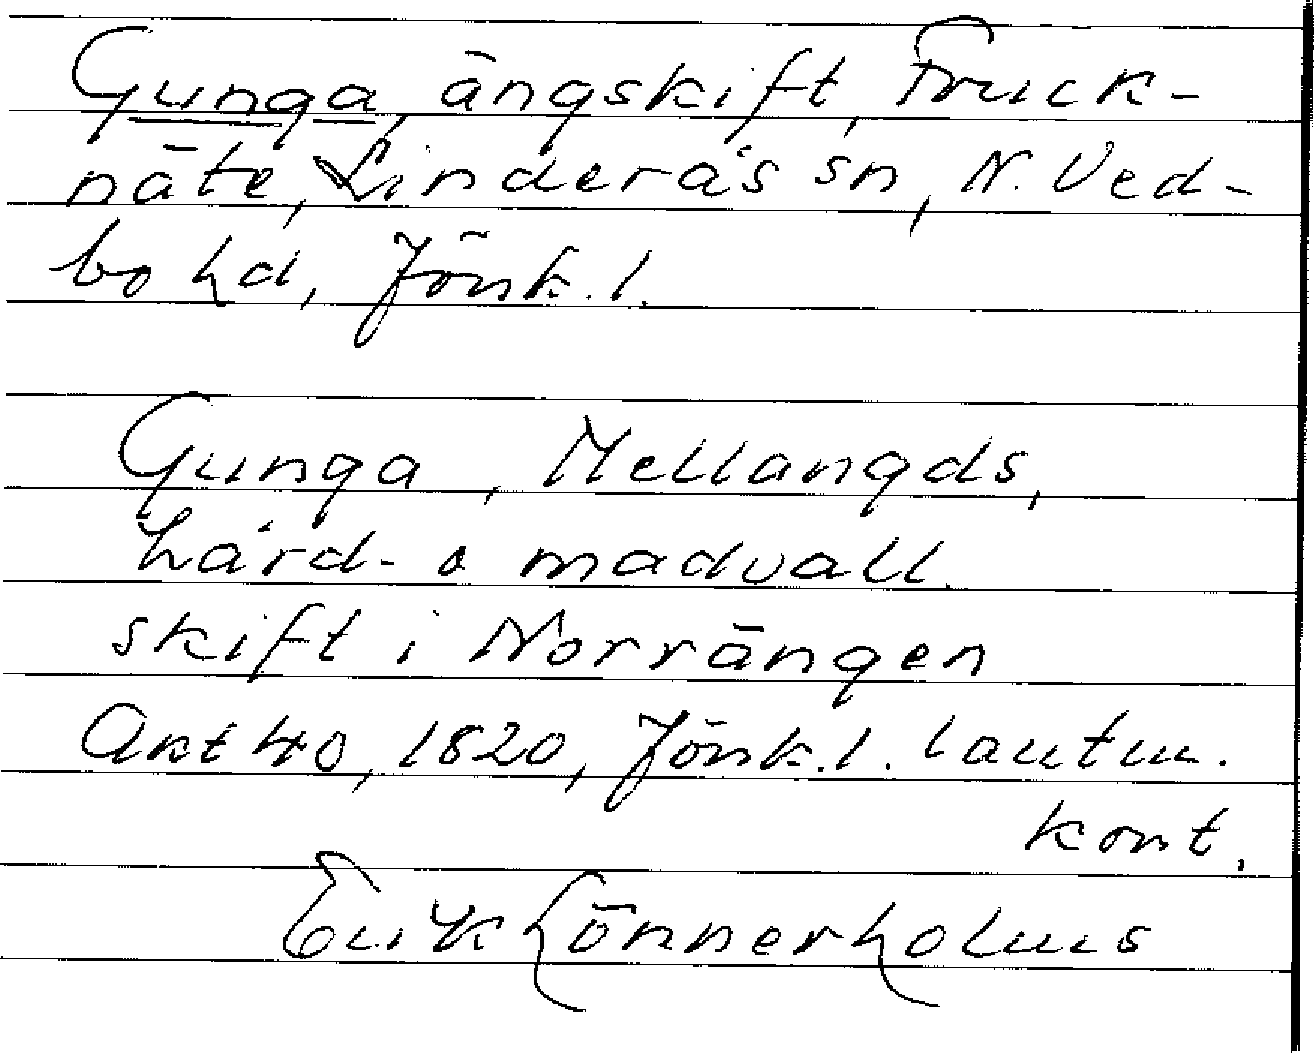 Gunga, ängskift, Fruck-
näte, Linderås sn, N. Ved-
bo hd, Jönk. l.
Gunga, Mellangds,
hård- o madvall.
skift i Norrängen
Akt 40, 1820, Jönk. l. lantm.
kont.
Erik Lönnerholms